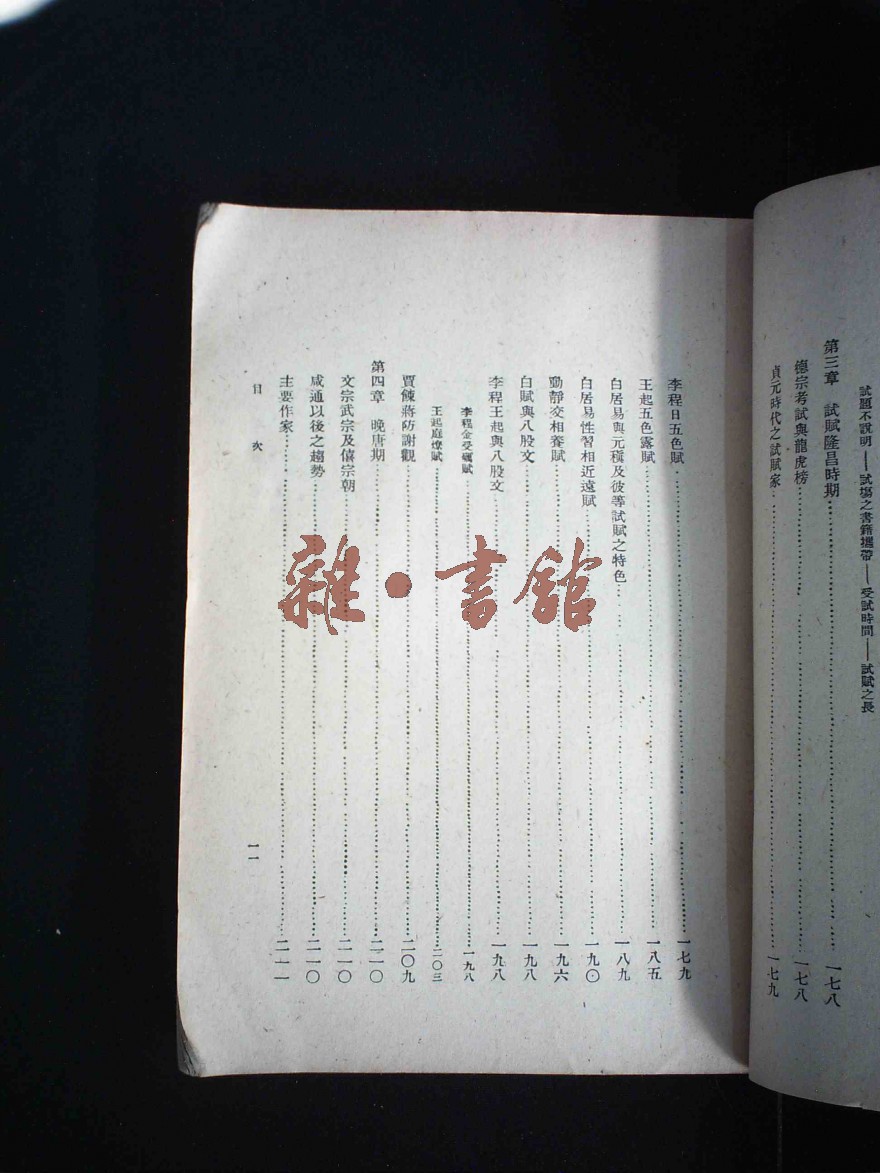 試題不說明——試場之書籍攜帶——受試時間——試賦之長
第三章 試賦隆昌時期……一七八
德宗考試與龍虎榜……一七八
貞元時代之試賦家……一七九
李程日五色賦……一七九
王起五色露賦……一八五
白居易與元稹及彼等試賦之特色……一八九
白居易性習相近遠賦……一九〇
動靜交相養賦……一九六
白賦與八股文……一九八
李程王起與八股文……一九八
李程金受礪賦……一九八
王起庭燎賦……二〇三
賈餗蔣防謝觀……二〇九
第四章 晚唐期……二一〇
文宗武宗及僖宗朝……二一〇
咸通以後之趨勢……二一〇
主要作家……二一一
目次
一一
雜·書館